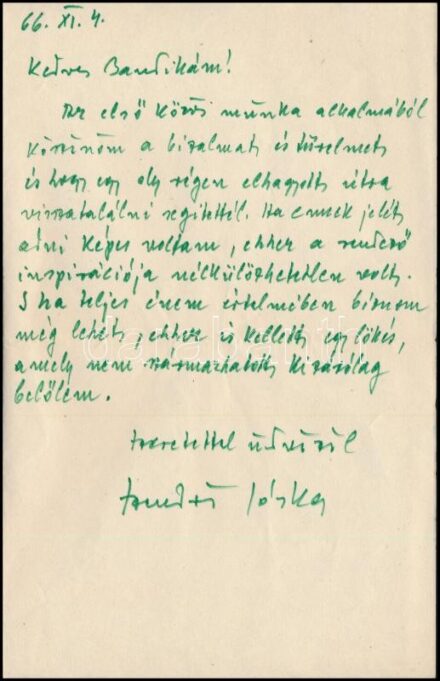 66. XI. 4.
Kedves Bandikám!
Az első közös munka alkalmából
köszönöm a bizalmat és türelmet
és hogy egy oly régen elhagyott útra
visszatalálni segítettél. Ha ennek jelét
adni képes voltam, ehhez a rendező
inspirációja nélkülözhetetlen volt.
S ha teljes énem értelmében bíznom
még lehet, ehhez is kellett egy lökés,
amely nem származhatott kizárólag
belőlem.
szeretettel üdvözöl
Jóska
darabanth